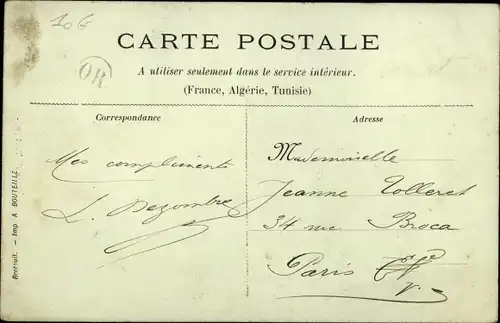 CARTE POSTALE
OR
A utiliser seulement dans le service intérieur.
(France, Algérie, Tunisie)
Correspondance
Adresse
Mes compliments
L. Dezombre
Mademoiselle
Jeanne Tolleret
34 rue Broca
Paris
Breteuil. — Imp A. BOUTEILLE.